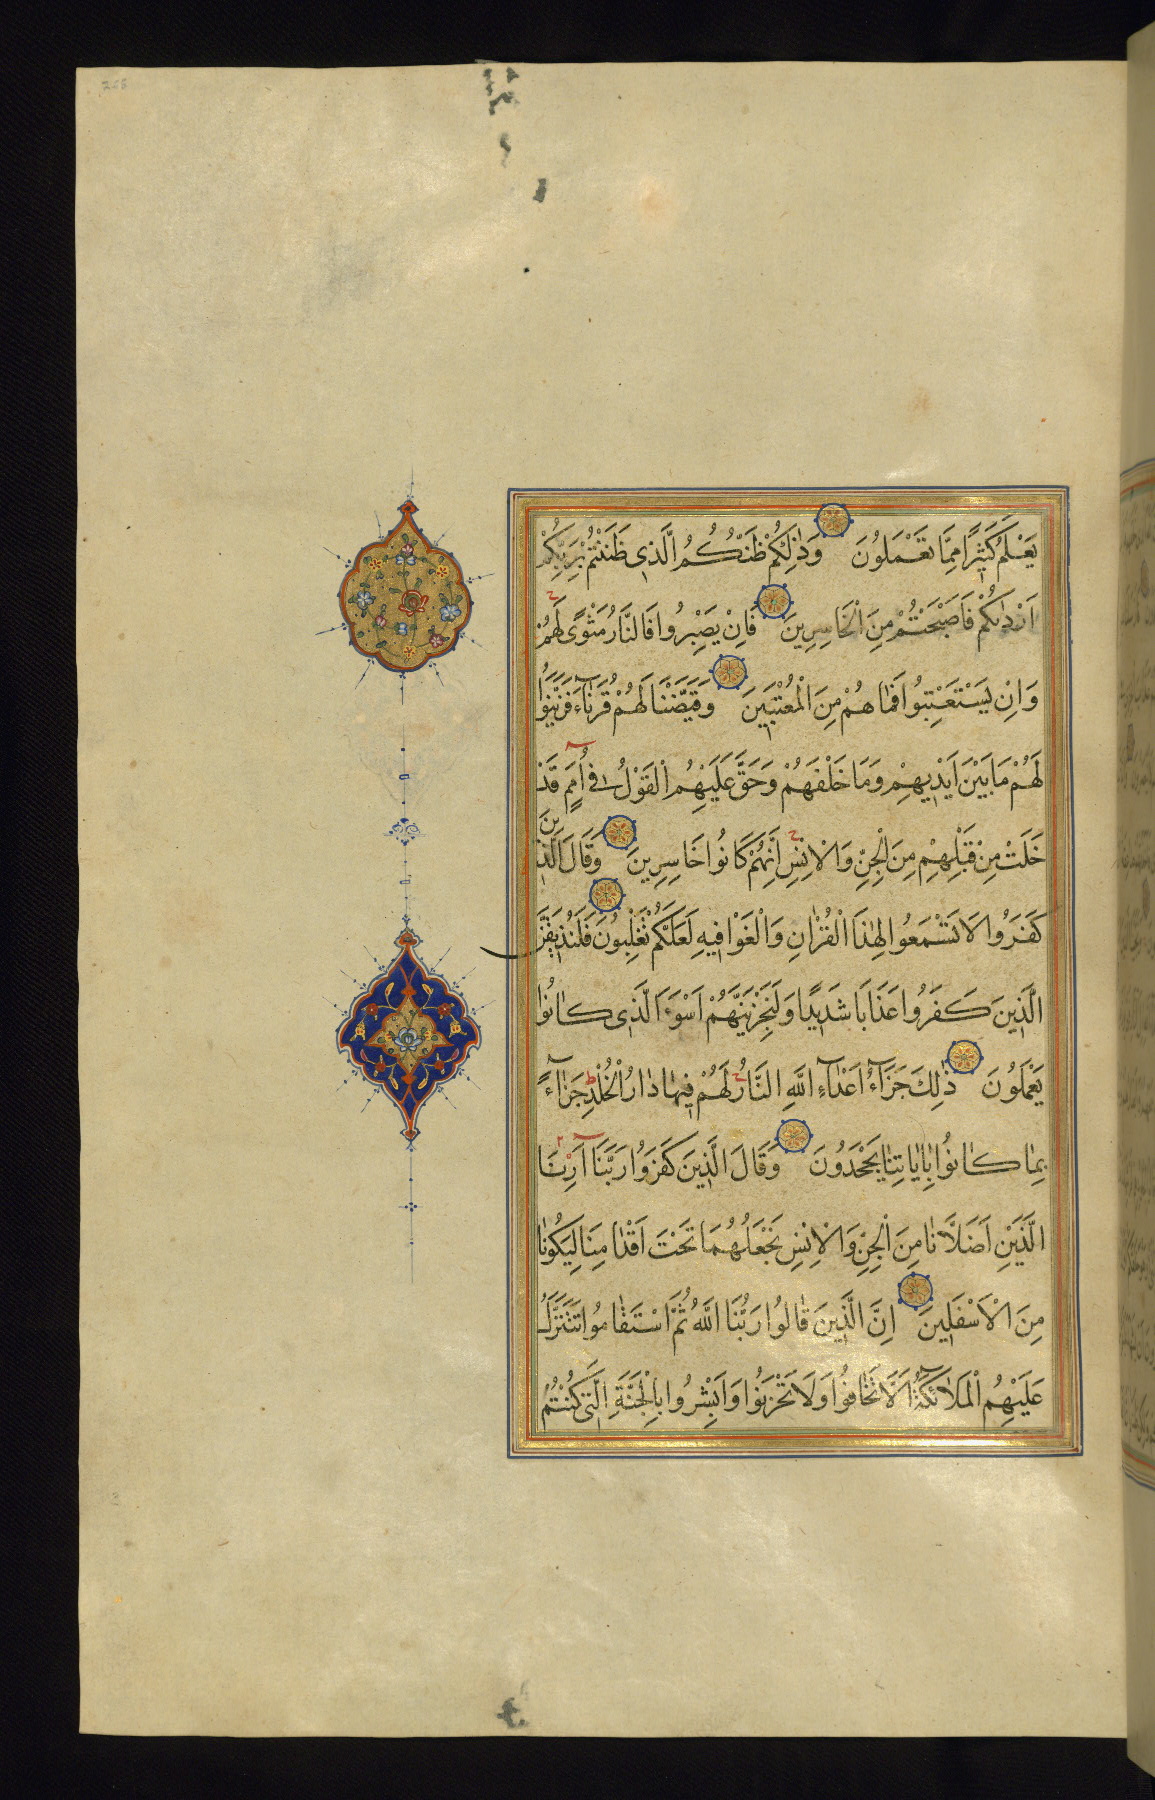 يَعْلَمُ كَثِيرًا مِمَّا تَعْمَلُونَ وَذٰلِكُمْ ظَنُّكُمُ الَّذِى ظَنَنْتُمْ بِرَبِّكُمْ
اَرْدٰىكُمْ فَاَصْبَحْتُمْ مِنَ الْخَاسِرِينَ فَاِنْ يَصْبِرُوا فَالنَّارُ مَثْوًى لَهُمْ
وَاِنْ يَسْتَعْتِبُوا فَمَا هُمْ مِنَ الْمُعْتَبِينَ وَقَيَّضْنَا لَهُمْ قُرَنَاءَ فَزَيَّنُوا
لَهُمْ مَا بَيْنَ اَيْدِيهِمْ وَمَا خَلْفَهُمْ وَحَقَّ عَلَيْهِمُ الْقَوْلُ فِى اُمَمٍ قَدْ
خَلَتْ مِنْ قَبْلِهِمْ مِنَ الْجِنِّ وَالْاِنْسِ اِنَّهُمْ كَانُوا خَاسِرِينَ وَقَالَ الَّذِينَ
كَفَرُوا لَا تَسْمَعُوا لِهٰذَا الْقُرْاٰنِ وَالْغَوْا فِيهِ لَعَلَّكُمْ تَغْلِبُونَ فَلَنُذِيقَنَّ
الَّذِينَ كَفَرُوا عَذَابًا شَدِيدًا وَلَنَجْزِيَنَّهُمْ اَسْوَءَ الَّذِى كَانُوا
يَعْمَلُونَ ذٰلِكَ جَزَاءُ اَعْدَاءِ اللَّهِ النَّارُ لَهُمْ فِيهَا دَارُ الْخُلْدِ جَزَاءً
بِمَا كَانُوا بِاٰيَاتِنَا يَجْحَدُونَ وَقَالَ الَّذِينَ كَفَرُوا رَبَّنَا اَرِنَا
الَّذَيْنِ اَضَلَّانَا مِنَ الْجِنِّ وَالْاِنْسِ نَجْعَلْهُمَا تَحْتَ اَقْدَامِنَا لِيَكُونَا
مِنَ الْاَسْفَلِينَ اِنَّ الَّذِينَ قَالُوا رَبُّنَا اللَّهُ ثُمَّ اسْتَقَامُوا تَتَنَزَّلُ
عَلَيْهِمُ الْمَلَائِكَةُ اَلَّا تَخَافُوا وَلَا تَحْزَنُوا وَاَبْشِرُوا بِالْجَنَّةِ الَّتِى كُنْتُمْ